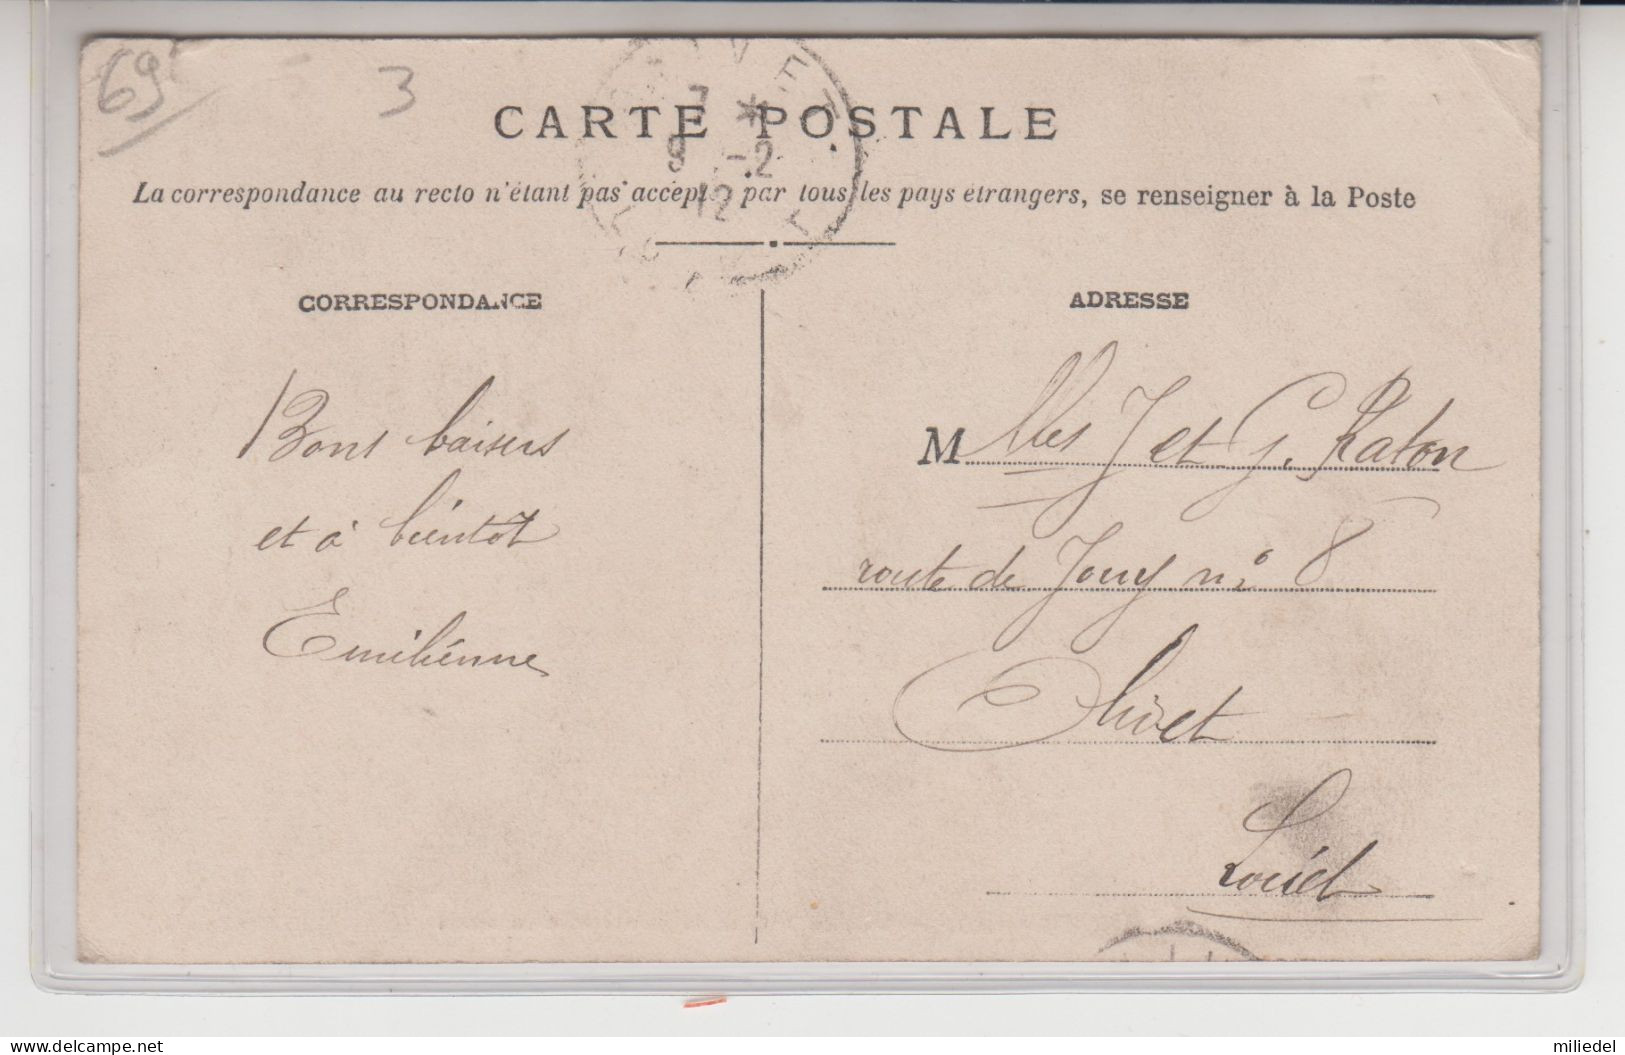 69
3
CARTE POSTALE
La correspondance au recto n'étant pas accepté par tous les pays étrangers, se renseigner à la Poste
7 *
9 -2
12
CORRESPONDANCE
ADRESSE
Bons baisers
et à bientot
Emilienne
M lles J et G. Raton
route de Jouy no 8
Olivet
Loiret
delcampe.net
miliedel